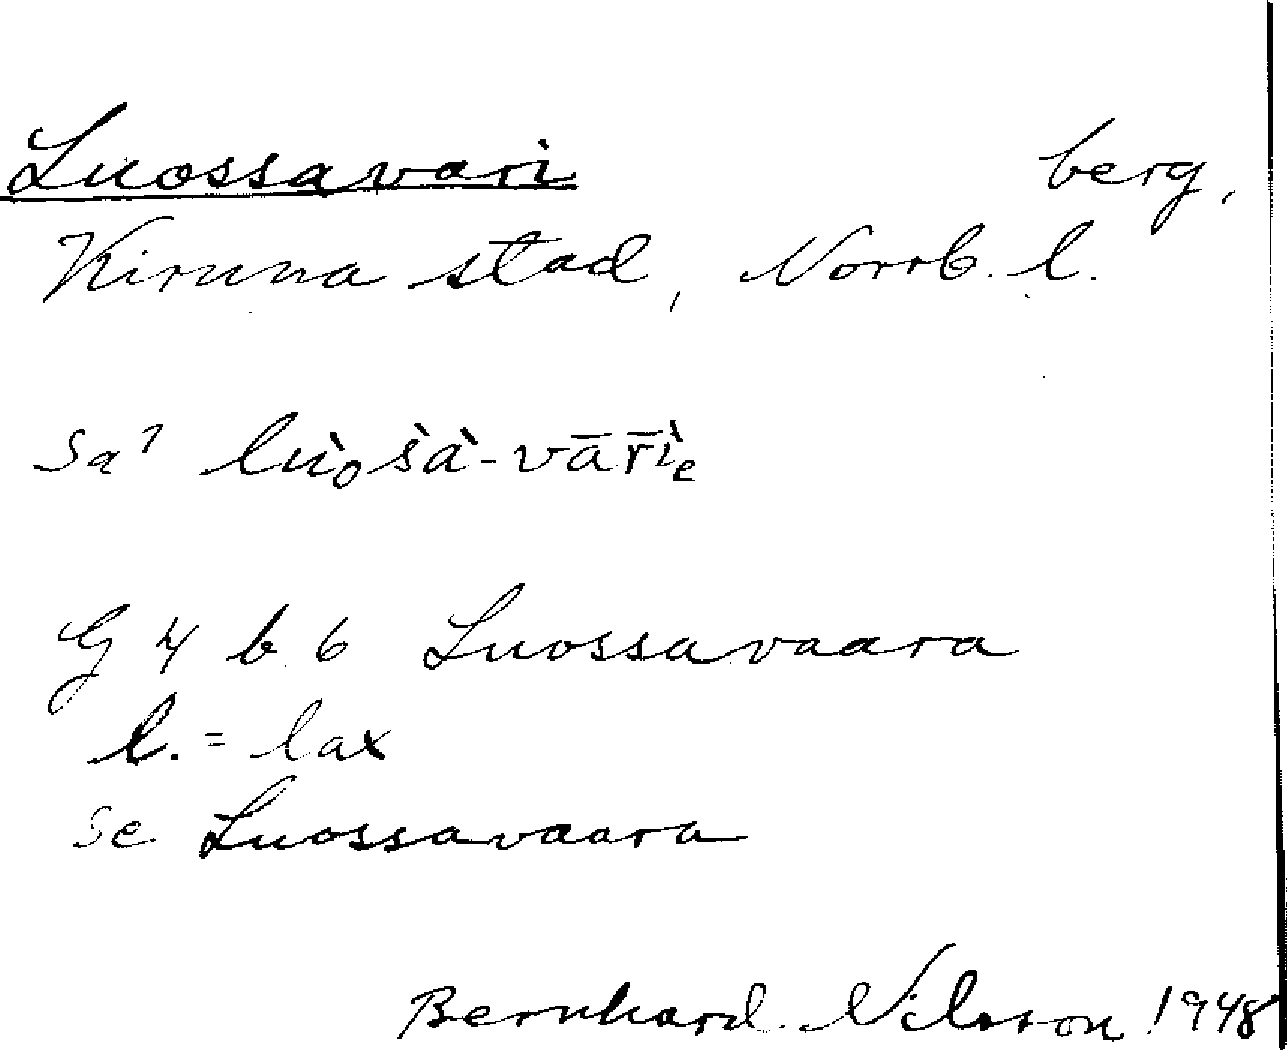 Luossavari berg,
Kiruna stad, Norrb. l.
Sa? lùₒs̀à-vār̄ìₑ
G 4 b 6 Luossavaara
l. = lax
se Luossavaara
Bernhard Nilsson 1948